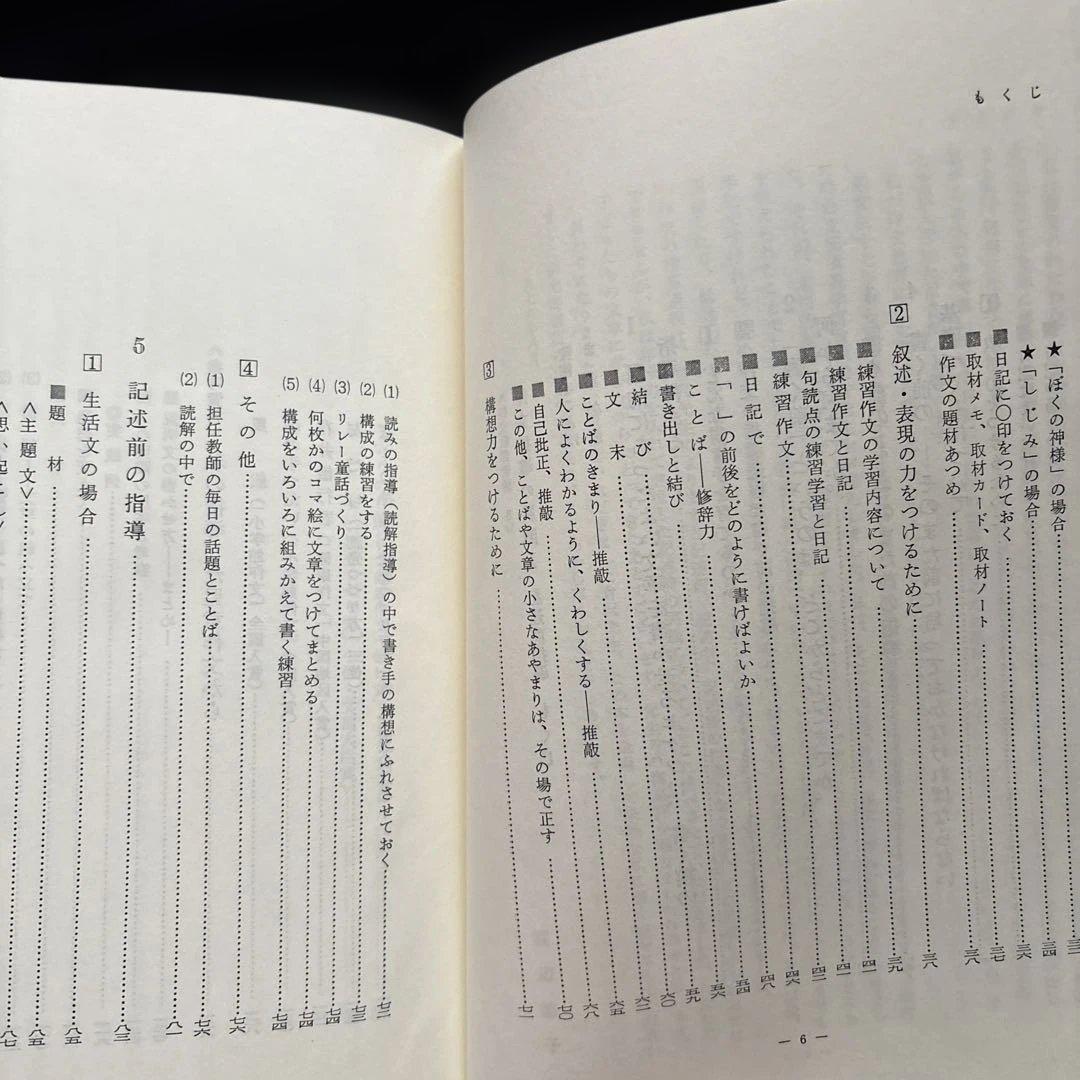 もくじ
★「ぼくの神様」の場合
★「しじみ」の場合……三四
■日記に〇印をつけておく……三六
■取材メモ、取材カード、取材ノート……三七
■作文の題材あつめ……三八
2 叙述・表現の力をつけるために……三八
■練習作文の学習内容について……三九
■練習作文と日記……四一
■句読点の練習学習と日記……四一
■練習作文……四二
■日記で……
■「 」の前後をどのように書けばよいか……四八
■ことば――修辞力……五四
■書き出しと結び……五六
■結び……五九
■文末……六〇
■ことばのきまり――推敲……六二
■人によくわかるように、くわしくする――推敲……六五
■自己批正、推敲……六八
■この他、ことばや文章の小さなあやまりは、その場で正す……七〇
3 構想力をつけるために……七一
― 6 ―
(1) 読みの指導（読解指導）の中で書き手の構想にふれさせておく……七二
(2) 構成の練習をする……七三
(3) リレー童話づくり……七四
(4) 何枚かのコマ絵に文章をつけてまとめる……七四
(5) 構成をいろいろに組みかえて書く練習……七四
4 その他……七六
(1) 担任教師の毎日の話題とことば……七六
(2) 読解の中で……八一
5 記述前の指導……八三
1 生活文の場合……八五
■題材……八五
＜主題文＞……八七